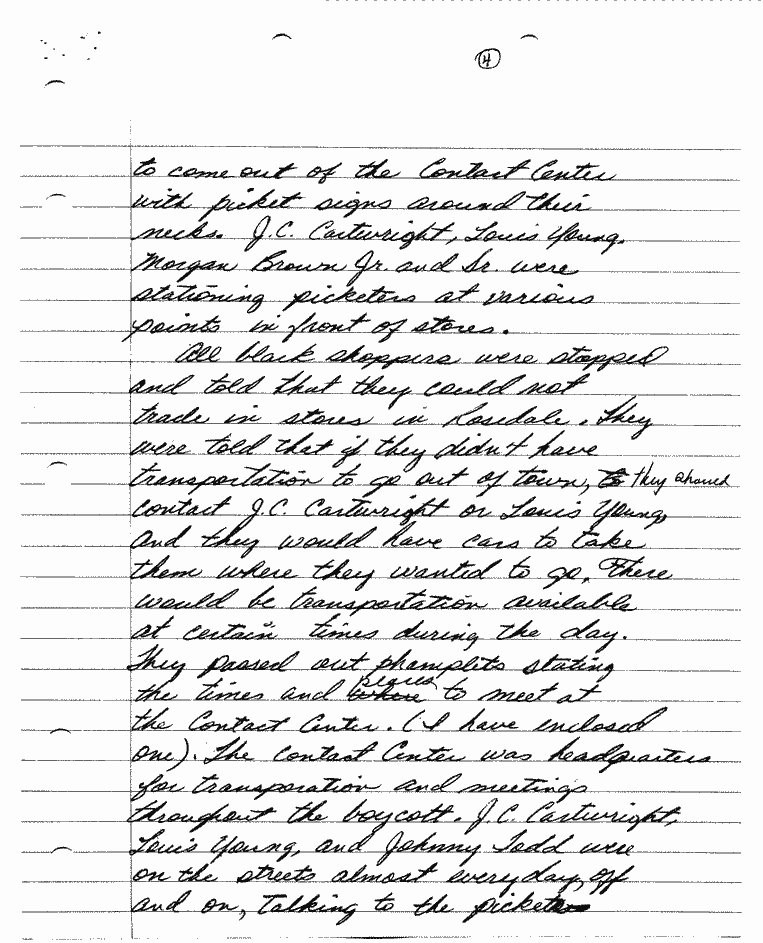 4
to come out of the Contact Center
with picket signs around their
necks. J.C. Cartwright, Louis Young,
Morgan Brown Jr. and Sr. were
stationing picketers at various
points in front of stores.
All black shoppers were stopped
and told that they could not
trade in stores in Rosedale. They
were told that if they didn't have
transportation to go out of town, to they should
contact J.C. Cartwright or Louis Young,
and they would have cars to take
them where they wanted to go. There
would be transportation available
at certain times during the day.
They passed out phamplets stating
the times and where to meet at
the Contact Center. (I have enclosed
one). The Contact Center was headquarters
for transporation and meetings
throughout the boycott. J.C. Cartwright,
Louis Young, and Johnny Todd were
on the streets almost everyday, off
and on, talking to the picketers